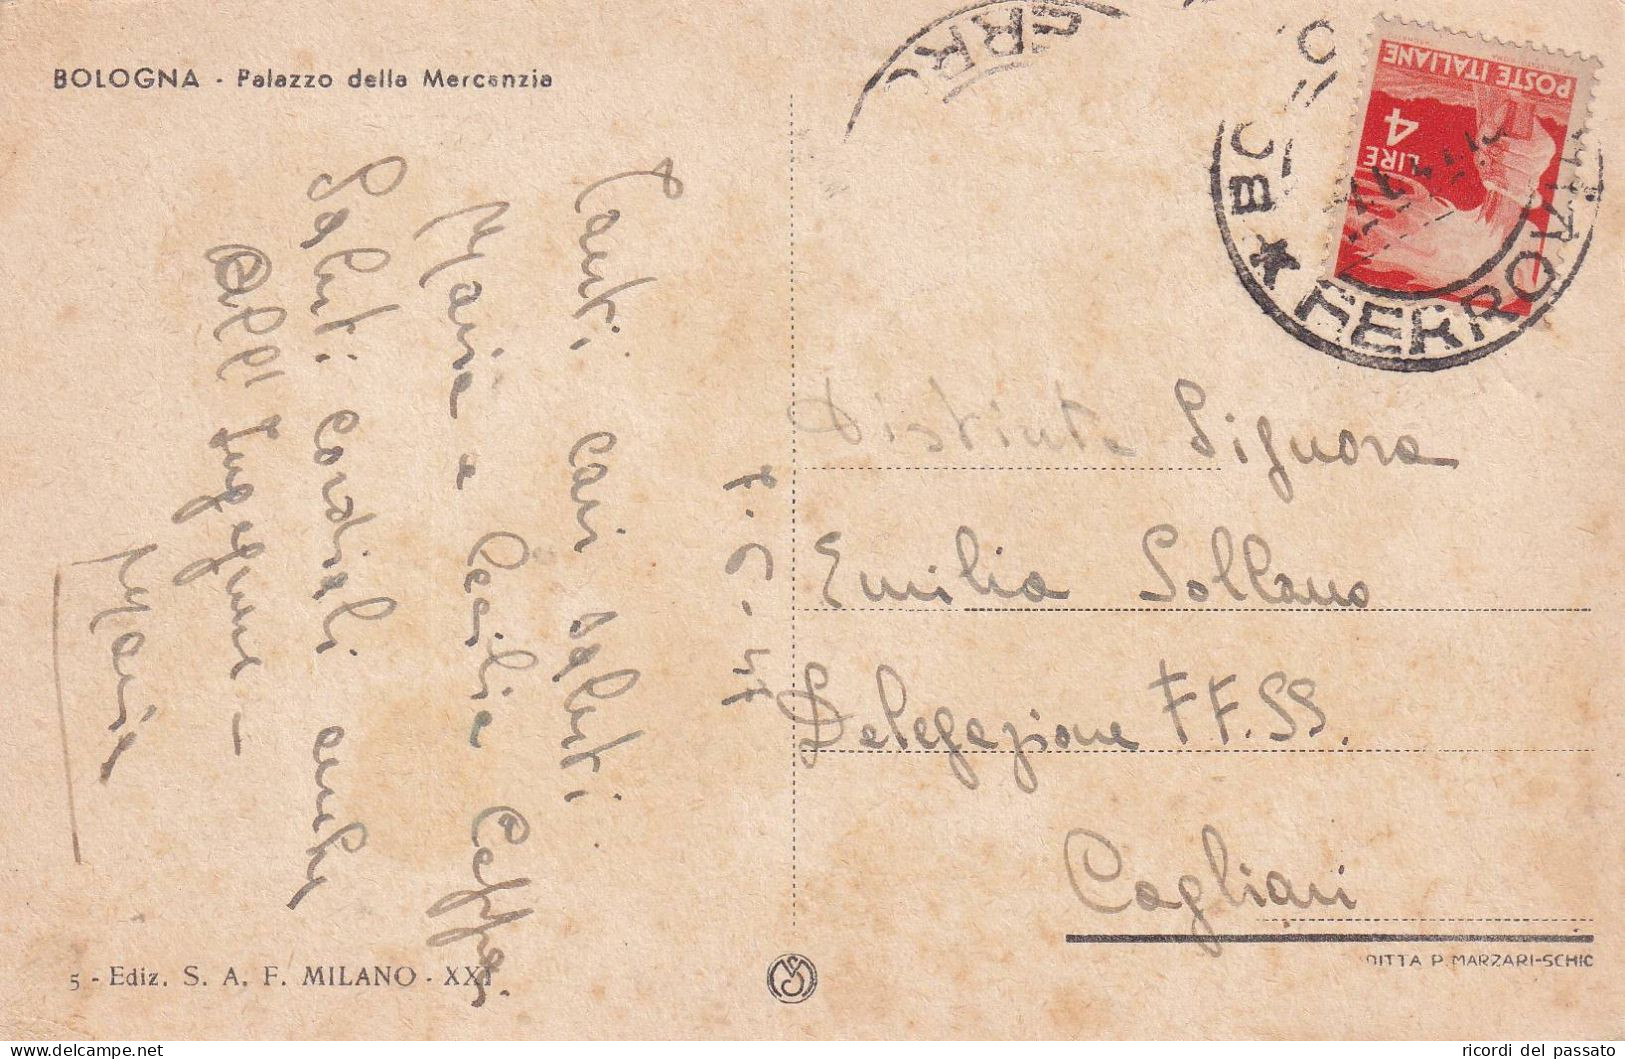 BOLOGNA - Palazzo della Mercanzia
7-6-47
Tanti cari saluti
Maria e Cecilia
Saluti cordiali anche
all'Ingegnere -
Maria
5 - Ediz. S. A. F. MILANO - XXI
POSTE ITALIANE
LIRE 4
BO
FERROVIA
Distinta Signora
Emilia Sollano
Delegazione FF.SS.
Cagliari
DITTA P. MARZARI-SCHIO
delcampe.net
ricordi del passato